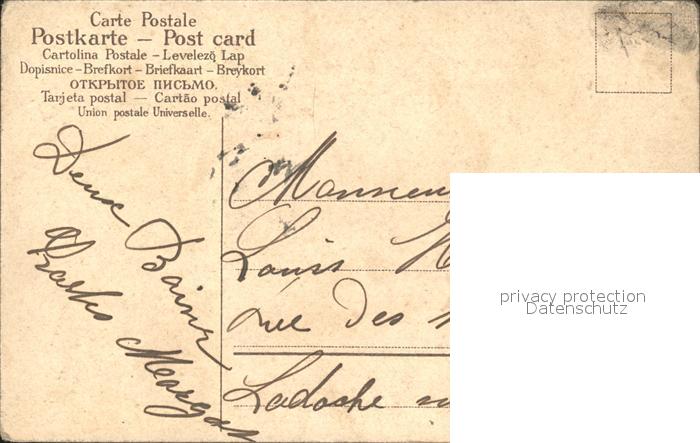 Carte Postale
Postkarte — Post card
Cartolina Postale – Levelező Lap
Dopisnice – Brefkort – Briefkaart – Breykort
ОТКРЫТОЕ ПИСЬМО.
Tarjeta postal — Cartão postal
Union postale Universelle.
Deux Baisers
Monsieur
Louis
Rue Des
privacy protection
Datenschutz